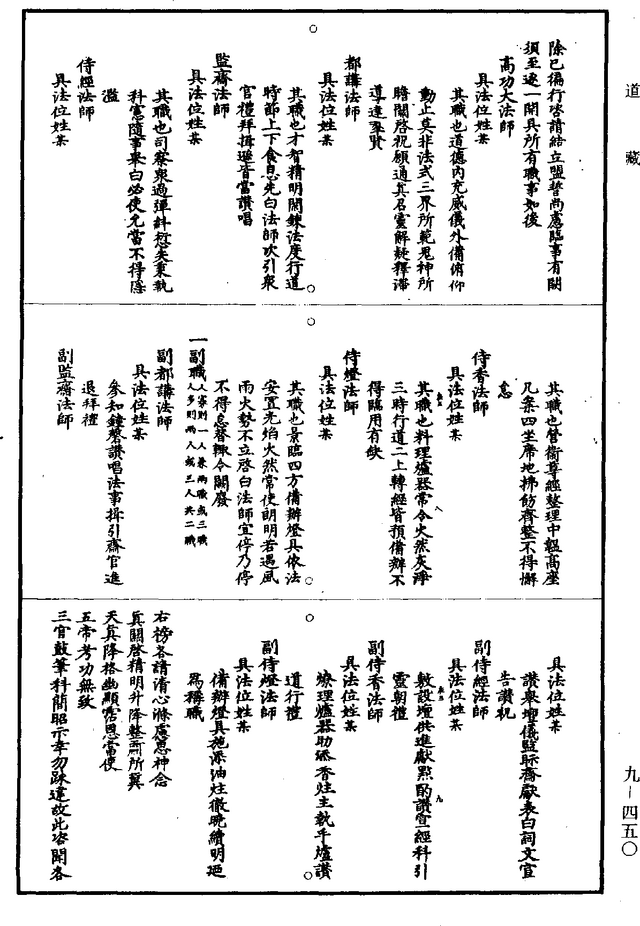 道藏
除已徧行啓請結立盟誓尚慮臨事有闕
須至逐一開具所有職事如後
高功大法師
具法位姓某
其職也道德內充威儀外備俯仰
動止莫非法式三界所範鬼神所
瞻關啓祝願通真召靈解疑釋滯
導達羣賢
都講法師
具法位姓某
其職也才智精明閑鍊法度行道
時節上下食息先白法師次引衆
官禮拜揖遜皆當讚唱
監齋法師
具法位姓某
其職也司察衆過彈糾愆失秉執
科憲隨事舉白必使允當不得隱
濫
侍經法師
具法位姓某
其職也營衞尊經整理巾韞高座
几案四坐席地拂飭齊整不得懈
怠
侍香法師
具法位姓某
其職也料理爐器常令火然灰淨
三時行道二上轉經皆預備辦不
得臨用有缺
侍燈法師
具法位姓某
其職也景臨四方備辦燈具依法
安置光焰火然常使朗明若遇風
雨火勢不立啓白法師宜停乃停
不得怠替輙令闕廢
一副職人寡則一人兼兩職或三職
人多則兩人或三人共二職
副都講法師
具法位姓某
參知鐘磬讚唱法事揖引齋官進
退拜禮
副監齋法師
具法位姓某
讚舉壇儀監眎齋獻表白詞文宣
告讚祝
副侍經法師
具法位姓某
敷設壇供進獻點酌讚宣經科引
靈朝禮
副侍香法師
具法位姓某
燎理爐器助添香炷主執手爐讚
道行禮
副侍燈法師
具法位姓某
備辦燈具施添油炷徹曉續明廼
爲稱職
右榜各請清心滌慮思神念
眞關啓精明升降整肅所冀
天眞降格幽顯霑恩當使
五帝考功無致
三官鼓筆科簡昭示幸勿踈違故此咨聞各
九－四五〇